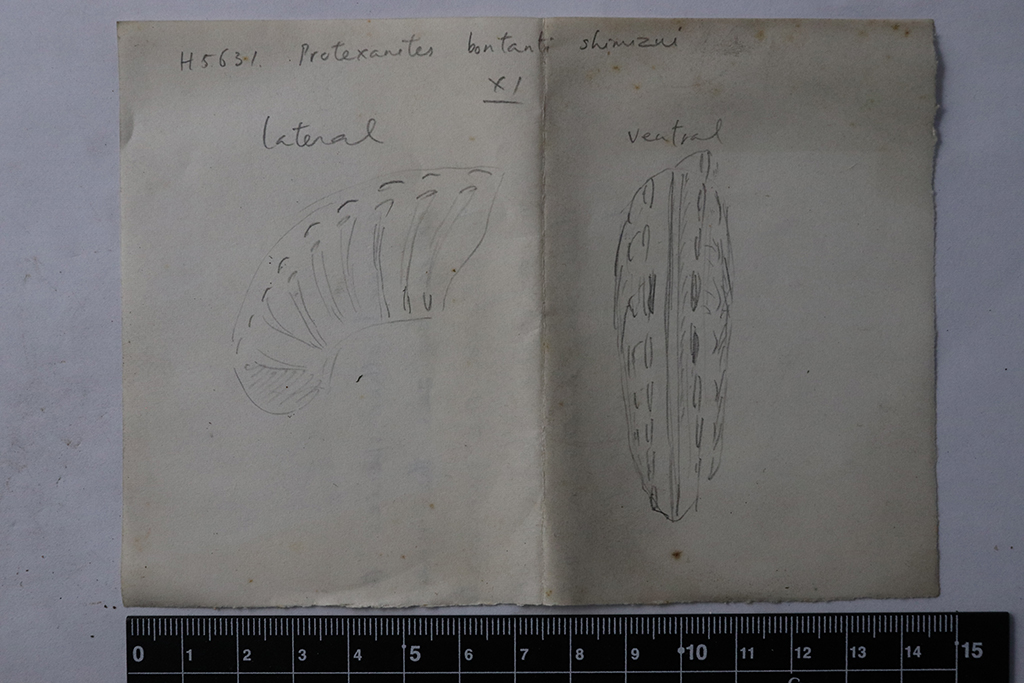 H5631. Protexanites bontanti shimizui
X1
lateral
ventral
0 1 2 3 4 5 6 7 8 9 10 11 12 13 14 15